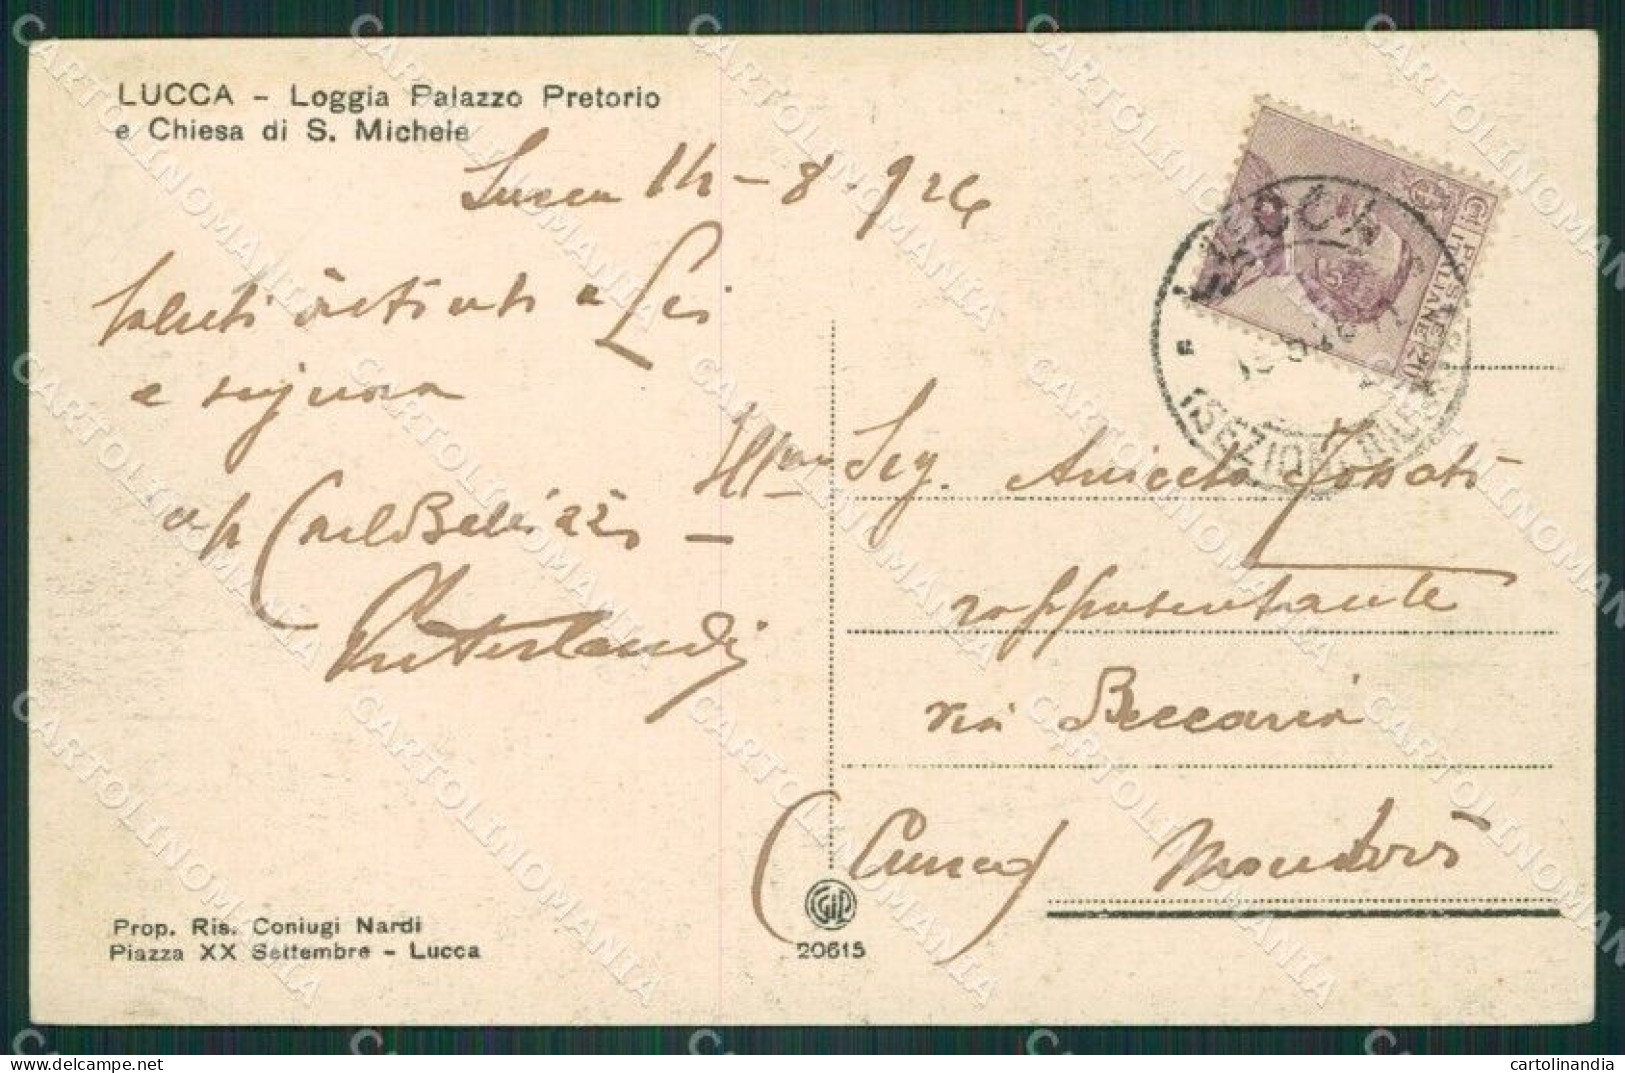 LUCCA - Loggia Palazzo Pretorio
e Chiesa di S. Michele
Lucca 14-8-926
Saluti a Lei
e signora
Ill.mo Sig. Aniceto
rappresentante
via Beccaria
(Cuneo) Mondovì
LUCCA
POSTE ITALIANE
20
Prop. Ris. Coniugi Nardi
Piazza XX Settembre - Lucca
20615
CARTOLINOMANIA
cartolinandia